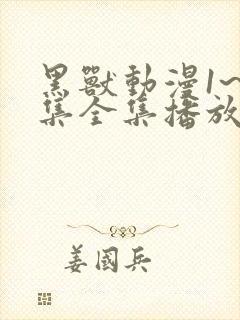 黑獸動漫1~
集全集播放
姜國兵